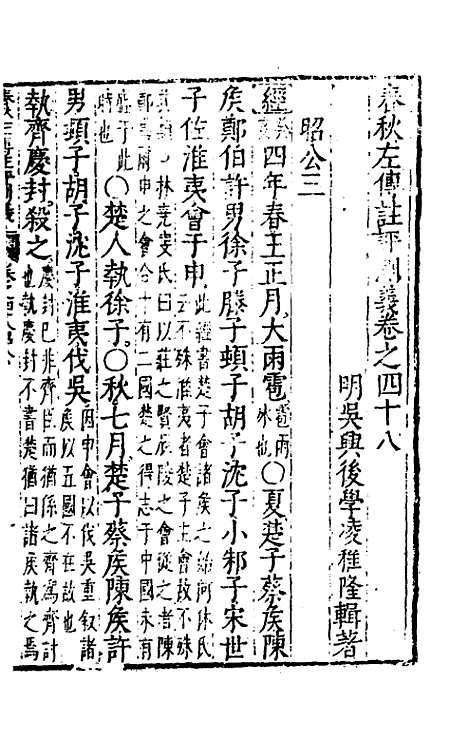 春秋左傳註評測義卷之四十八
明吳興後學凌稚隆輯著
昭公三
經四年春王正月大雨雹○夏楚子蔡侯陳
侯鄭伯許男徐子滕子頓子胡子沈子小邾子宋世
子佐淮夷會于申此經書楚子會諸侯之始何休氏云不殊淮夷者楚子主會故不殊
林堯叟氏曰以莊之賢辰陵之會從之者陳鄭爾申之會合十有二國楚之得志于中國未有盛于此時也○楚人執徐子○秋七月楚子蔡侯陳侯許
男頓子胡子沈子淮夷伐吳因申會以伐吳重敘諸侯以五國不在故也
執齊慶封殺之慶封已非齊臣而猶係之齊爲齊討也執慶封不書楚猶曰諸侯執之焉